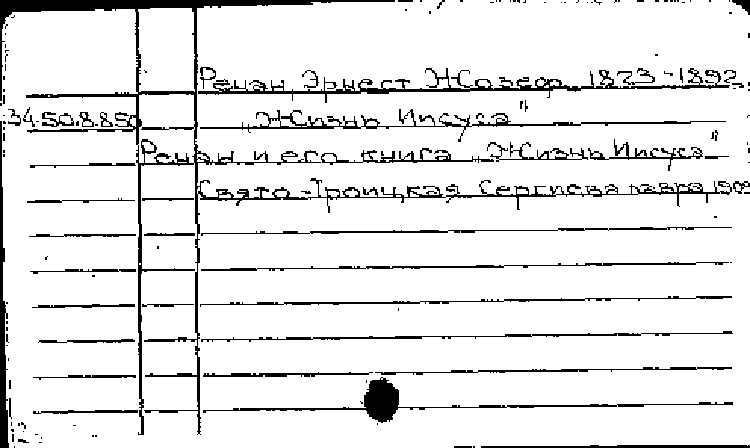 Ренан, Эрнест Жозеф, 1823-1892.
34.508.850 „Жизнь Иисуса"
Ренан и его книга „Жизнь Иисуса"
Свято-Троицкая Сергиева лавра, 1908